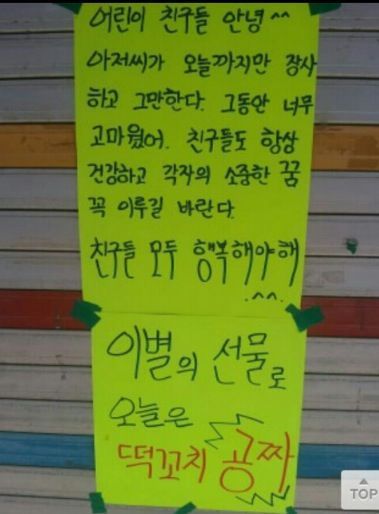 어린이 친구들 안녕^^
아저씨가 오늘까지만 장사
하고 그만한다. 그동안 너무
고마웠어. 친구들도 항상
건강하고 각자의 소중한 꿈
꼭 이루길 바란다.
친구들 모두 행복해야해
.^^.
이별의 선물로
오늘은
떡꼬치 공짜
TOP